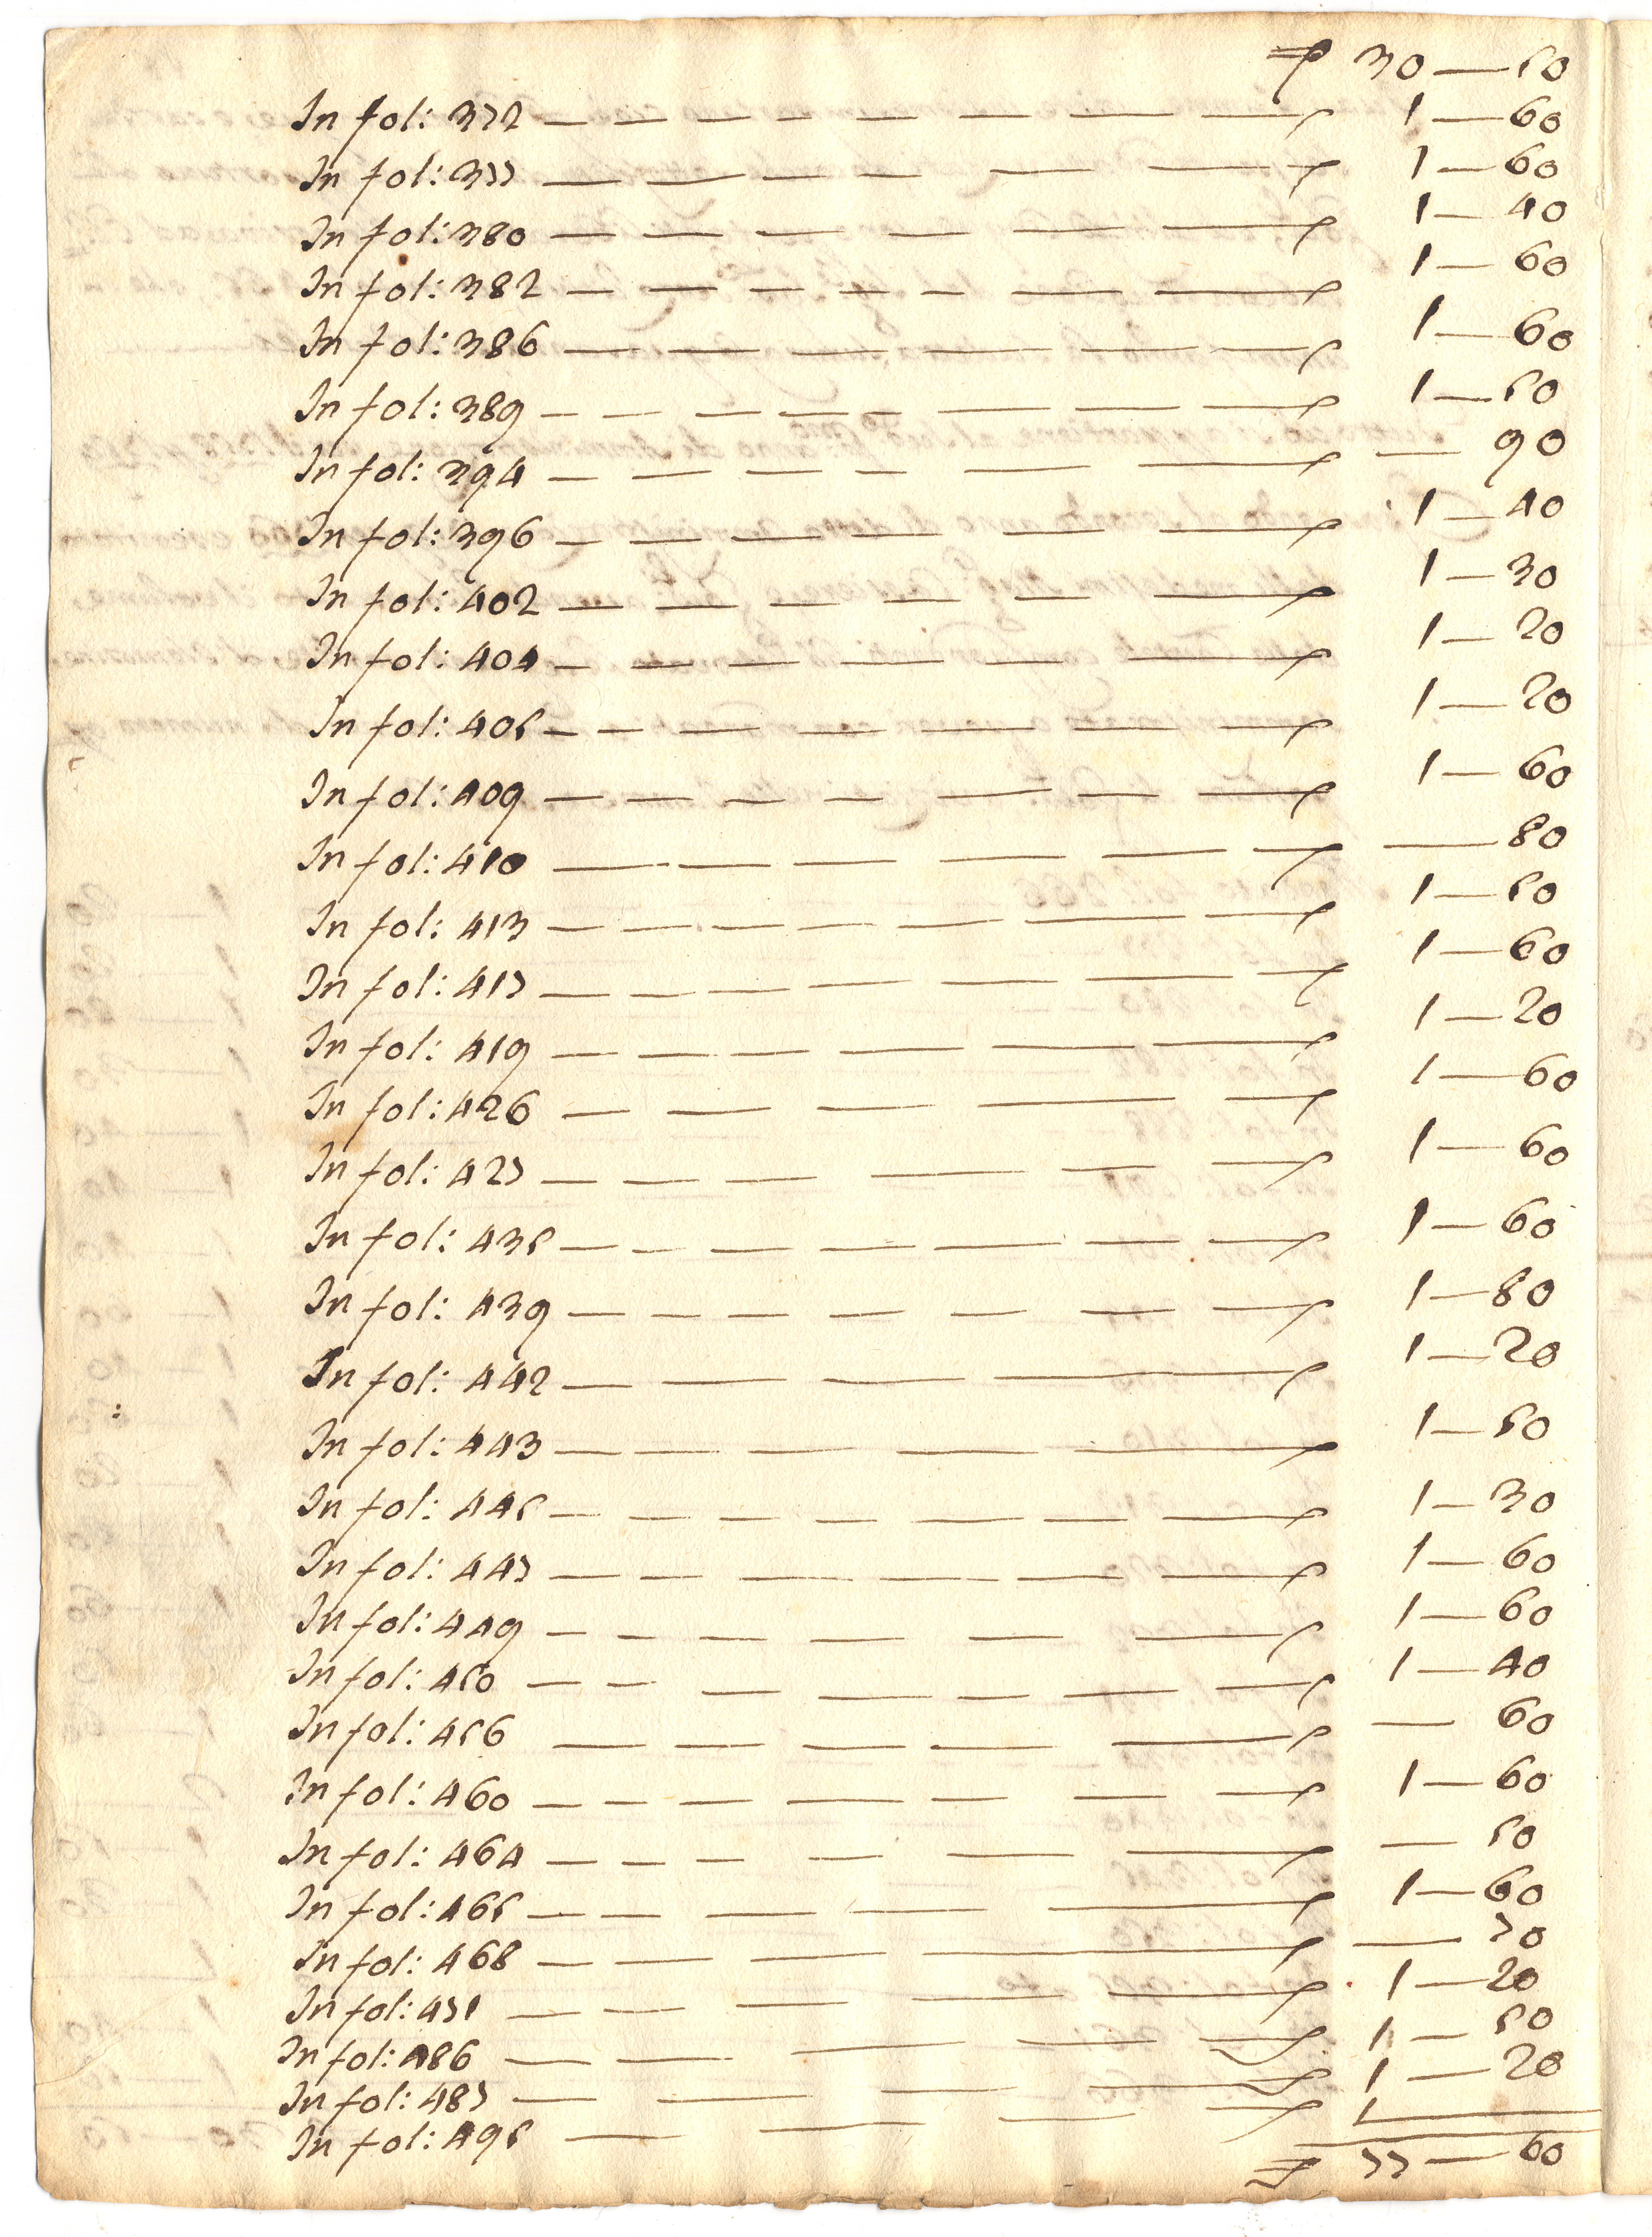 30 — 50
In fol: 372 — 1 — 60
In fol: 377 — 1 — 60
In fol: 380 — 1 — 40
In fol: 382 — 1 — 60
In fol: 386 — 1 — 60
In fol: 389 — 1 — 50
In fol: 394 — — 90
In fol: 396 — 1 — 40
In fol: 402 — 1 — 30
In fol: 404 — 1 — 20
In fol: 405 — 1 — 20
In fol: 409 — 1 — 60
In fol: 410 — — 80
In fol: 413 — 1 — 50
In fol: 417 — 1 — 60
In fol: 419 — 1 — 20
In fol: 426 — 1 — 60
In fol: 427 — 1 — 60
In fol: 435 — 1 — 60
In fol: 439 — 1 — 80
In fol: 442 — 1 — 20
In fol: 443 — 1 — 50
In fol: 445 — 1 — 30
In fol: 447 — 1 — 60
In fol: 449 — 1 — 60
In fol: 450 — 1 — 40
In fol: 456 — — 60
In fol: 460 — 1 — 60
In fol: 464 — — 50
In fol: 465 — 1 — 60
In fol: 468 — — 70
In fol: 471 — 1 — 20
In fol: 486 — 1 — 50
In fol: 487 — 1 — 20
In fol: 495 — 1 —
77 — 60